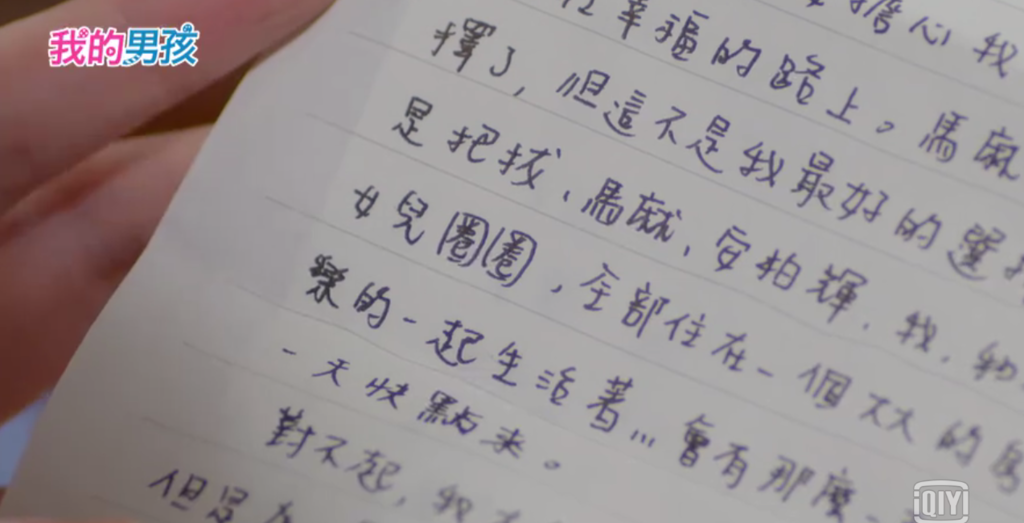 我的男孩
擔心我
幸福的路上。馬麻
擇了，但這不是我最好的選擇
是把拔、馬麻、安柏輝、我、和
女兒圈圈，全部住在一個大大的房
樂的一起生活著...會有那麼一
一天快點來。
對不起，我
但是
iQIYI